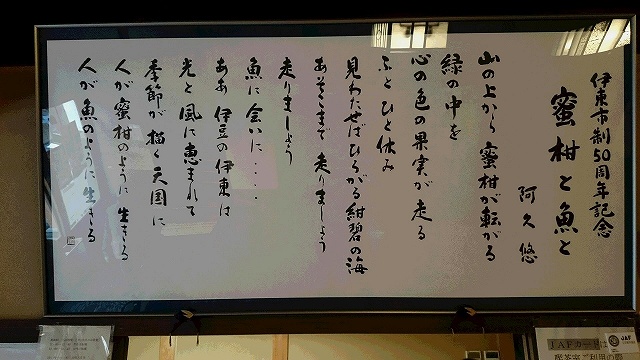 伊東市制50周年記念
蜜柑と魚と
阿久悠
山の上から 蜜柑が転がる
緑の中を
心の色の果実が走る
ふとひと休み
見わたせばひろがる紺碧の海
あそこまで 走りましょう
走りましょう
魚に会いに・・・・
ああ 伊豆の伊東は
光と風に恵まれて
季節が描く天国に
人が蜜柑のように 生きる
人が魚のように 生きる
JAFカードは
JAF
喫茶室ご利用の際